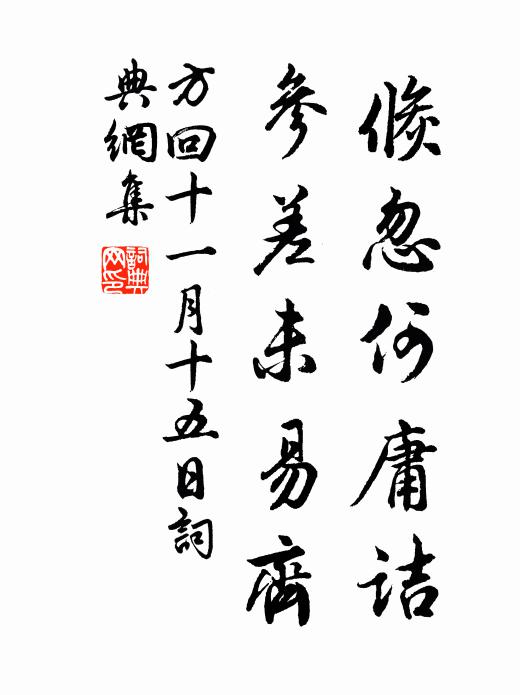 倏忽何庸詰
參差未易齊
方回十一月十五日詞
典網集
詞典
网印